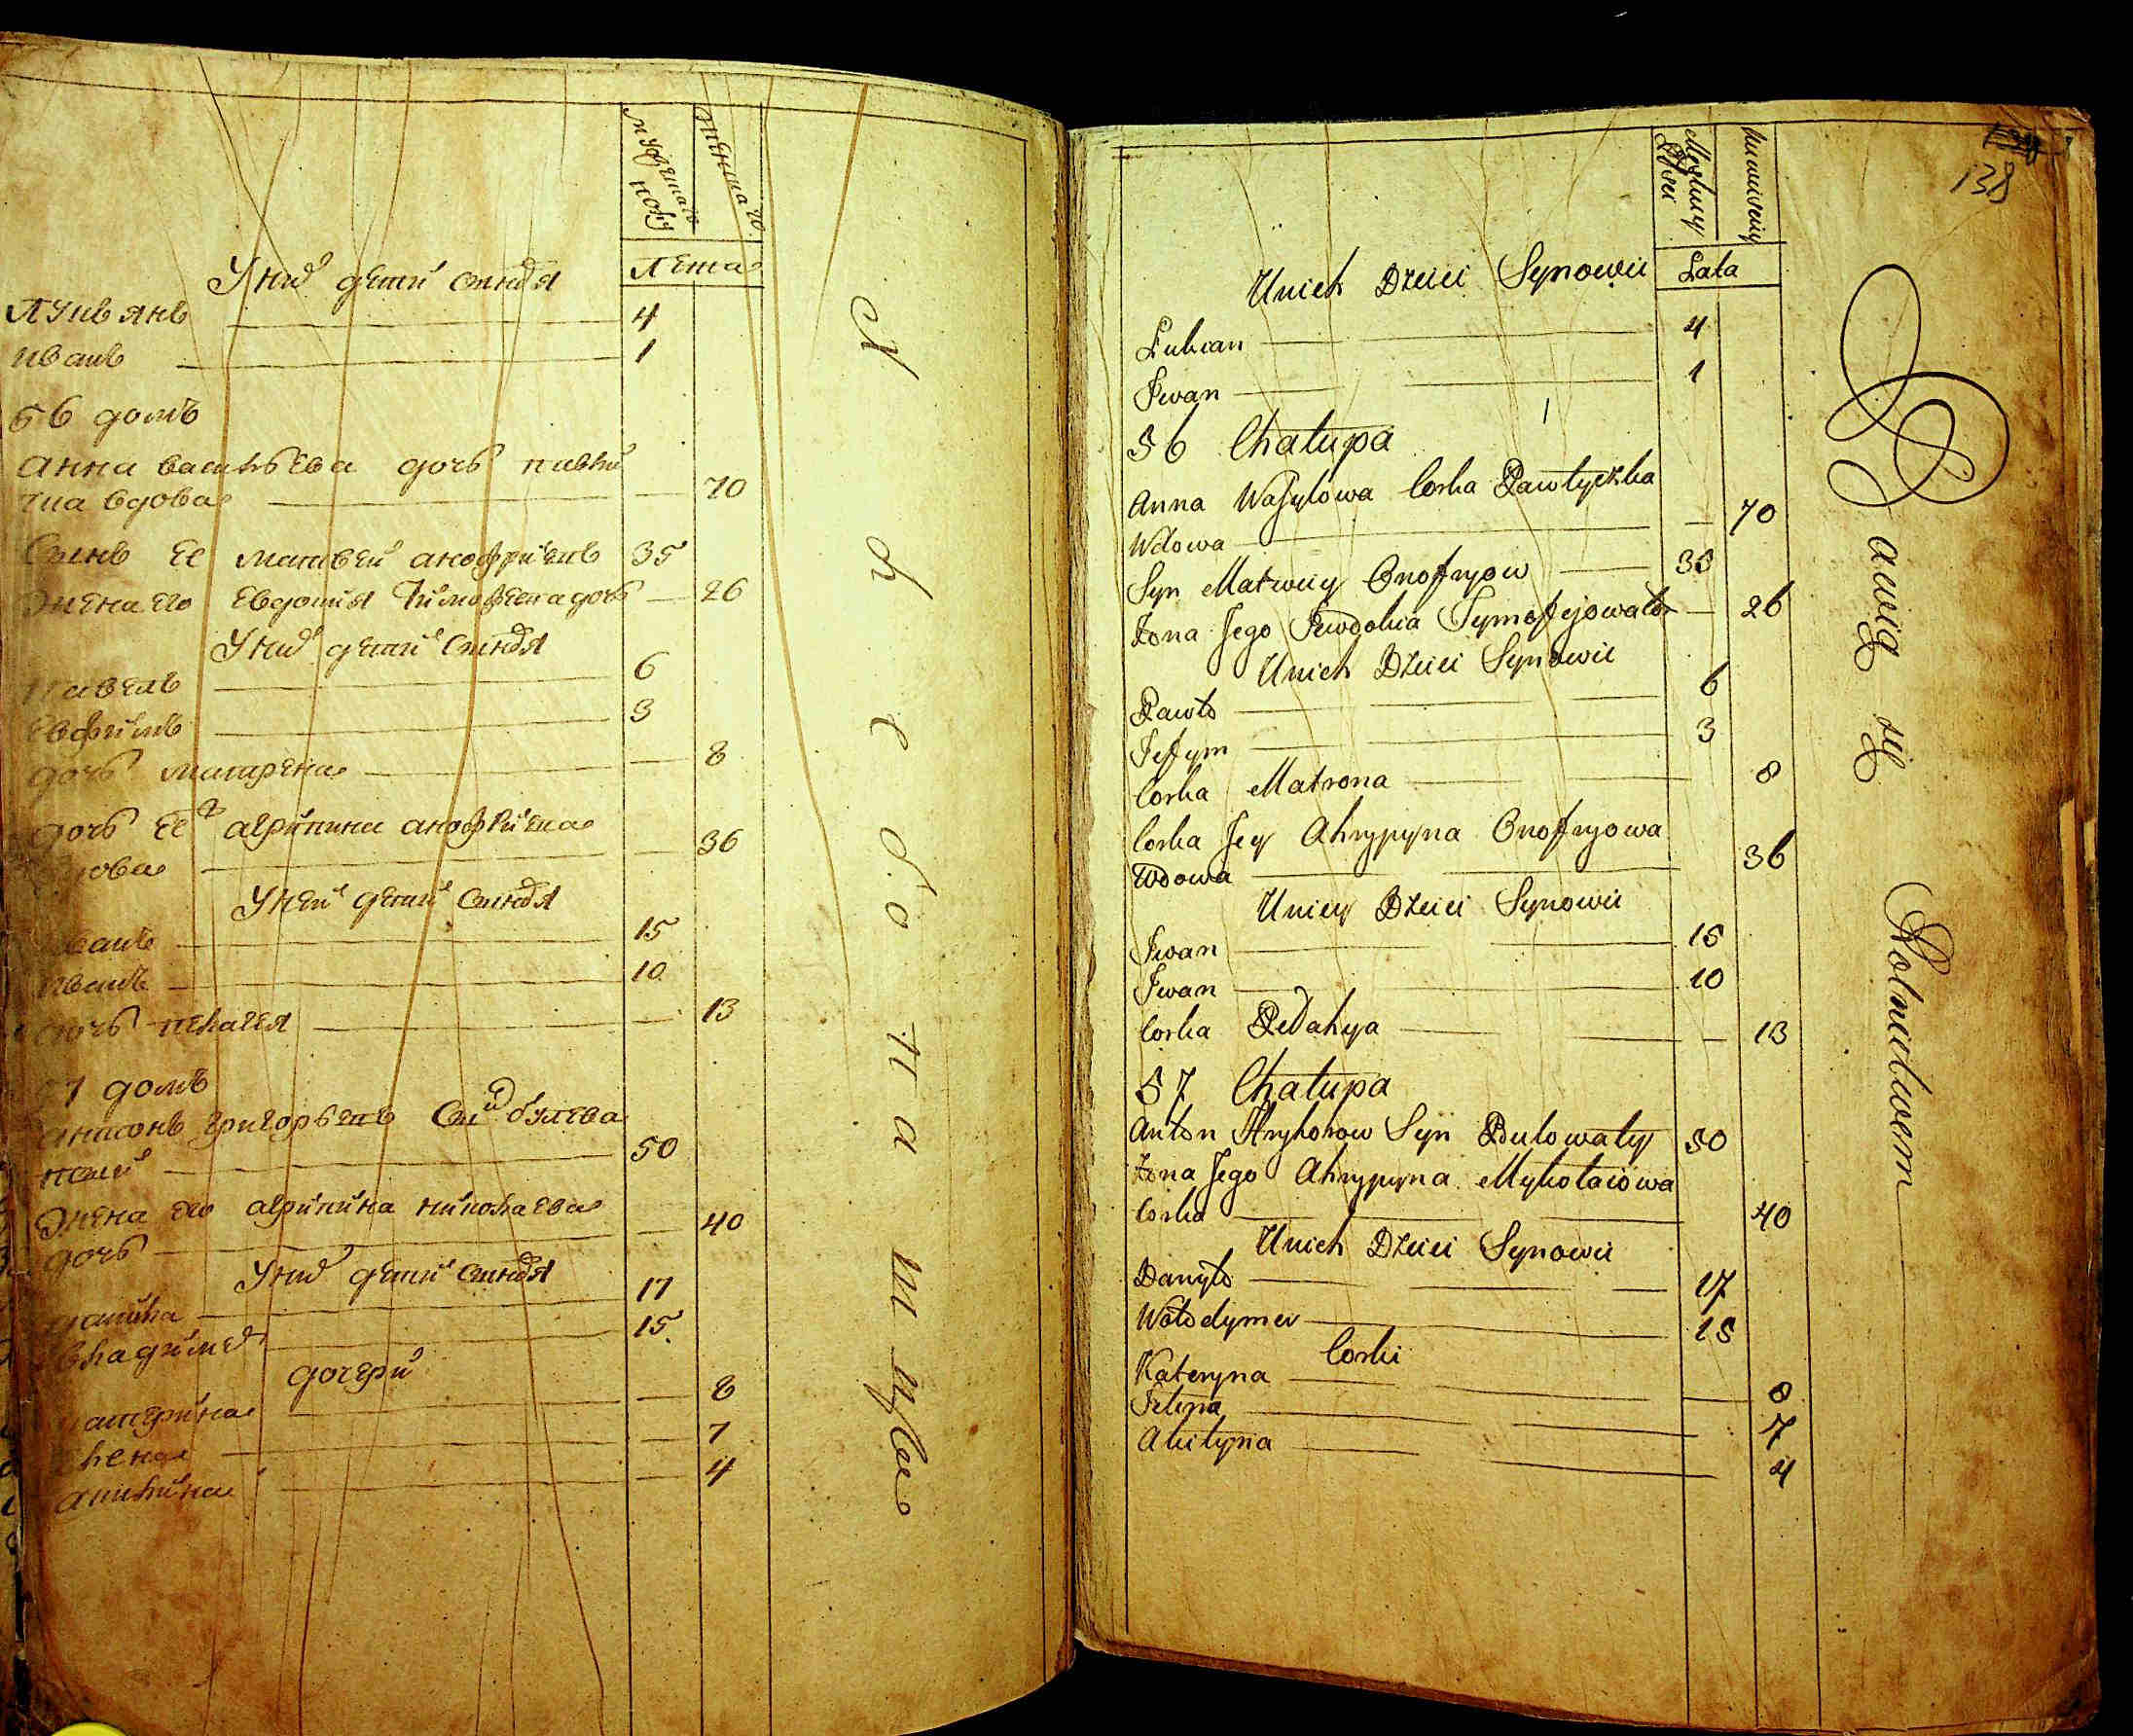 мужеска
полу
женска
Лета
У них детей синовя
Лукьянъ 4
иванъ 1
56 домъ
анна васильева дочь павли
чка вдова 70
Сынъ ее матвей анофриевъ 35
Жена его евдокия Тимофеева дочь 26
У них детей синовя
павелъ 6
ефимъ 3
дочь матрена 8
дочь ее агрипина анофриева
вдова 36
У ней детей синовя
иванъ 15
иванъ 10
дочь пелагея 13
57 домъ
антонъ григорьевъ Синъ булева
тий 50
Жена его агрипина николаева
дочь 40
У них детей синовя
данила 17
владимеръ 15
дочери
катерина 8
елена 7
акилина 4
138
Męskiey
Płci
Lata
Unich Dzieci Synowie
Łukian 4
Iwan 1
56 Chałupa
Anna Wasylowa Corka Pawłyczka
Wdowa 70
Syn Matwiey Onofryow 35
Żona Jego Jewdokia Tymofejowa Cor 26
Unich Dzieci Synowie
Pawło 6
Jefym 3
Corka Matrona 8
Corka Jey Ahrypyna Onofryowa
Wdowa 36
Uniey Dzieci Synowie
Iwan 15
Iwan 10
Corka Pelahya 13
57 Chałupa
Anton Hryhorow Syn Bulowaty 50
Żona Jego Ahrypyna Mykołaiowa
Corka 40
Unich Dzieci Synowie
Danyło 17
Wołodymer 15
Corki
Kateryna 8
Jełena 7
Akilyna 4
Bawią się Rolnictwem